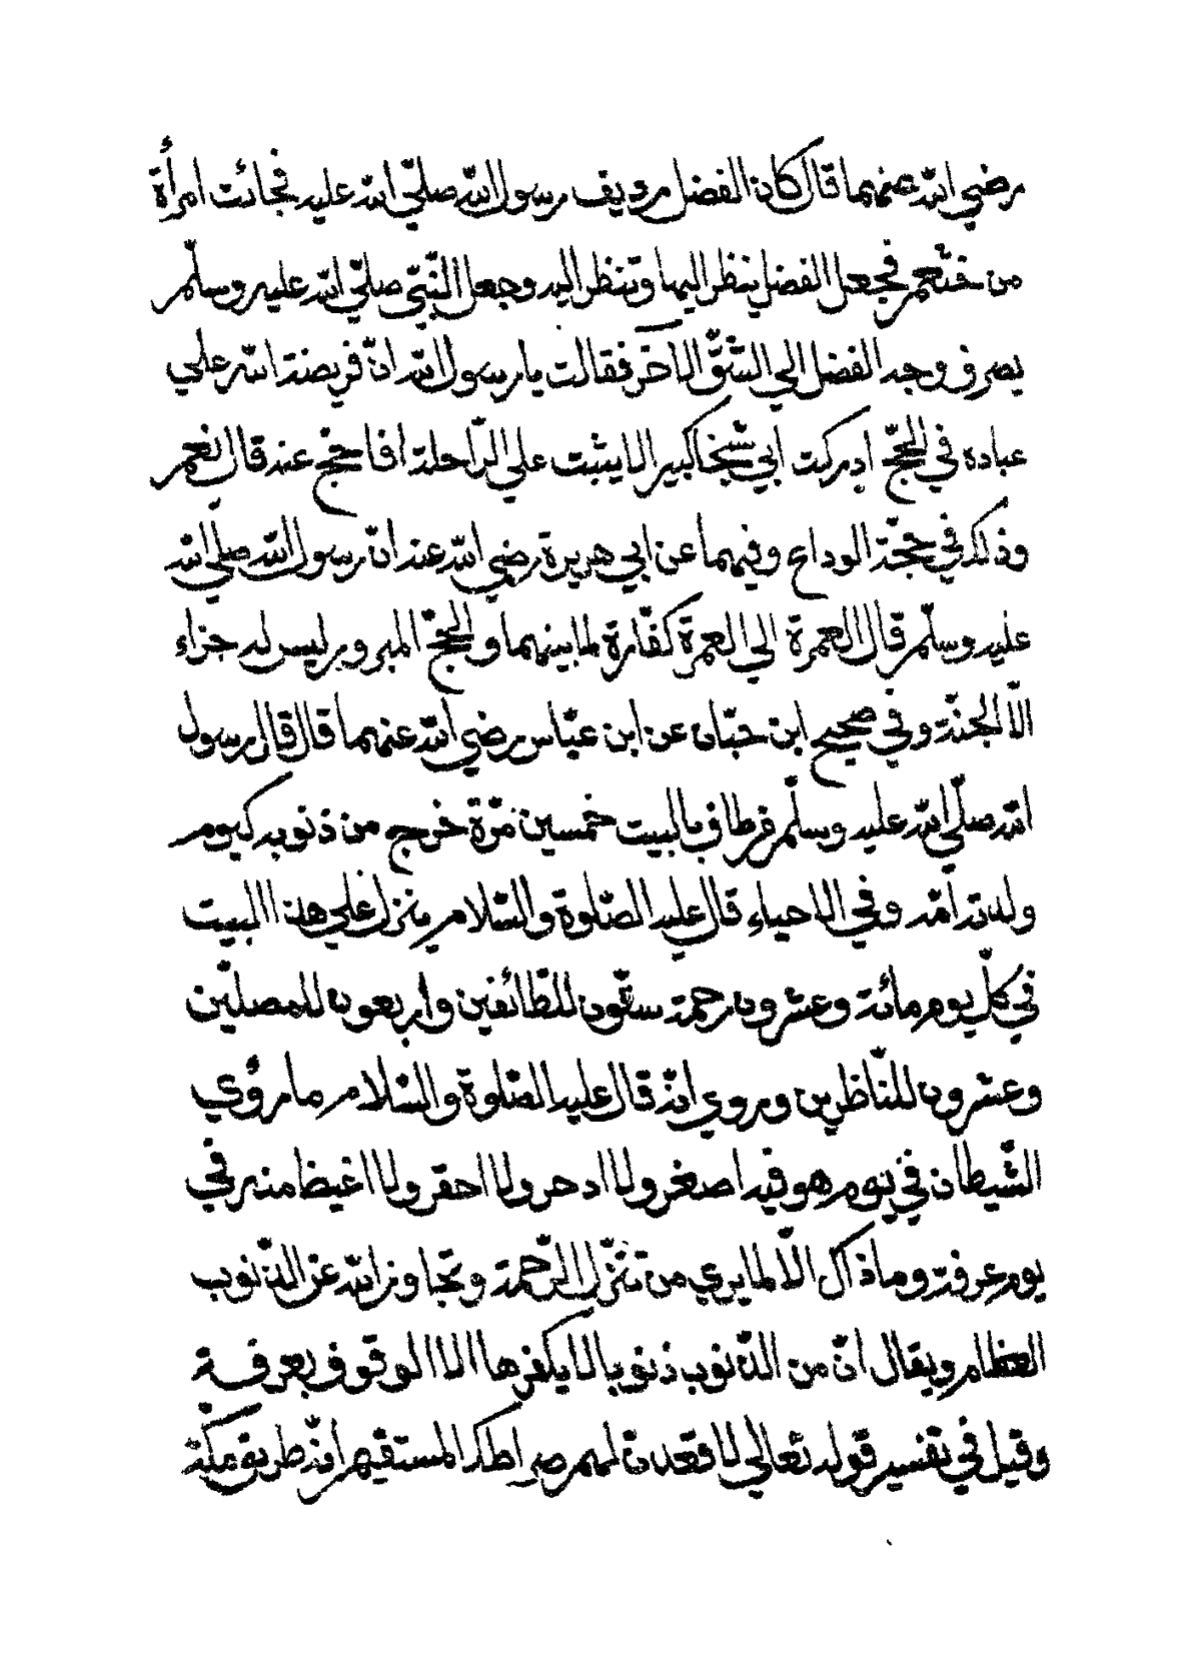 رضي الله عنهما قال كان الفضل رديف رسول الله صلّي الله عليه فجائت امرأة
من خثعم فجعل الفضل ينظر اليها وتنظر اليه وجعل النّبيّ صلّي الله عليه وسلّم
يصرف وجه الفضل الي الشّقّ الاخر فقالت يا رسول الله انّ فريضة الله علي
عباده في الحجّ ادركت ابي شيخا كبيرا لا يثبت علي الرّاحلة افاحجّ عنه قال نعم
وذلك في حجّة الوداع وفيهما عن ابي هريرة رضي الله عنه انّ رسول الله صلّي الله
عليه وسلّم قال العمرة الي العمرة كفّارة لما بينهما والحجّ المبرور ليس له جزاء
الّا الجنّة وفي صحيح ابن حبّان عن ابن عبّاس رضي الله عنهما قال قال رسول
الله صلّي الله عليه وسلّم من طاف بالبيت خمسين مرّة خرج من ذنوبه كيوم
ولدته امّه وفي الاحياء قال عليه الصّلوة والسّلام ينزل علي هذا البيت
في كلّ يوم مائة وعشرون رحمة ستّون للطّائفين واربعون للمصلّين
وعشرون للنّاظرين وروي انّه قال عليه الصّلوة والسّلام ما رؤي
الشّيطان في يوم هو فيه اصغر ولا ادحر ولا احقر ولا اغيظ منه في
يوم عرفة وما ذاك الّا لما يري من تنزّل الرّحمة وتجاوز الله عن الذّنوب
العظام ويقال انّ من الذّنوب ذنوبا لا يكفرها الا الوقوف بعرفة
وقيل في تفسير قوله تعالي لاقعدنّ لهم صراطك المستقيم انّه طريق مكّة